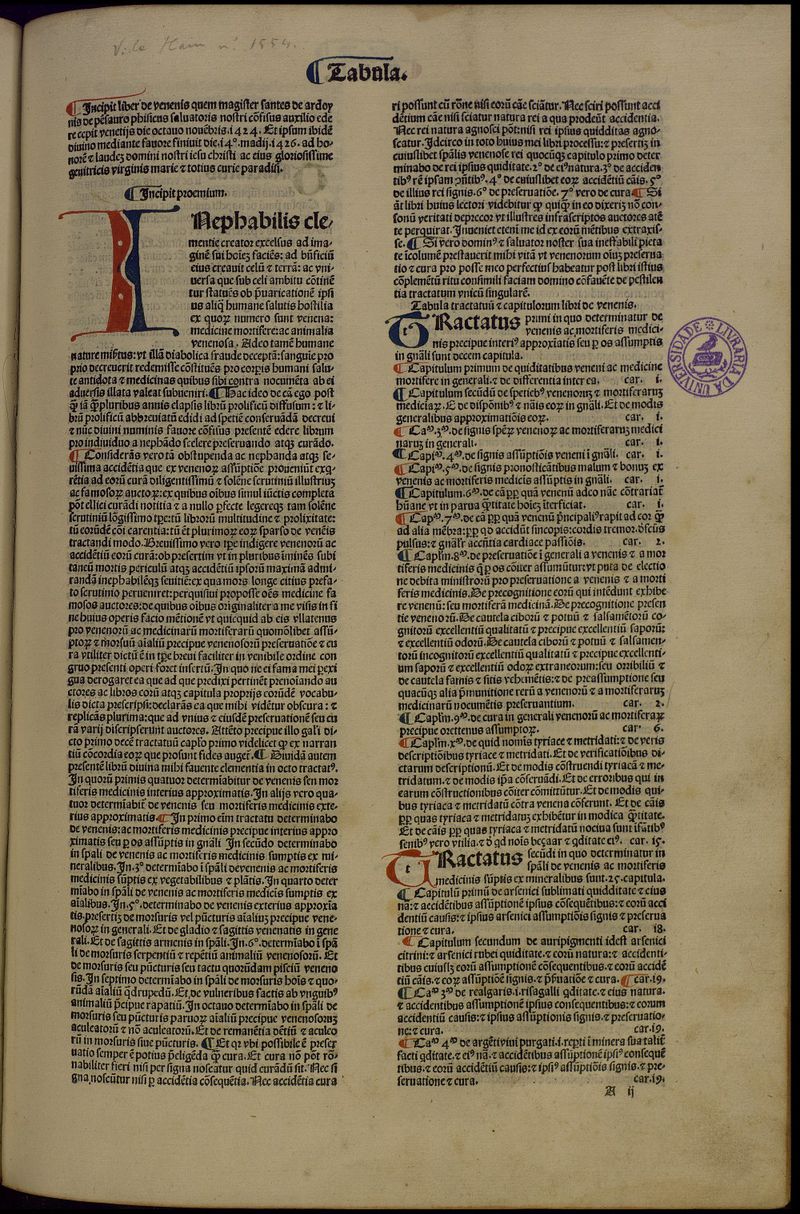 Tabula.
¶ Incipit liber de venenis quem magister santes de ardoy
nis de pẽsauro phisicus saluatoris nostri cõfisus auxilio ede
re cepit venetijs die octauo nouẽbris.1424. Et ipsum ibidẽ
diuino mediante fauore finiuit die.14°. madij.1426. ad ho-
norẽ ⁊ laudeʒ domini nostri iesu christi ac eius gloriosissime
genitricis virginis marie ⁊ totius curie paradisi.
¶ Incipit proemium.
INephabilis cle-
mentie creator excelsus ad ima-
ginẽ sui hoieʒ faciẽs: ad bñficiũ
eius creauit celũ ⁊ terrã: ac vni-
uersa que sub celi ambitu cõtinẽ
tur statuẽs ob p̃uaricationẽ ipsi
us aliq̃ humane salutis hostilia
ex quoꝝ numero sunt venena:
medicine mortifere: ac animalia
venenosa. Adeo tamẽ humane
nature misertus: vt illã diabolica fraude deceptã: sanguie pro
prio decreuerit redemisse cõstituẽs pro corpis humani salu-
te antidota ⁊ medicinas quibus sibi contra nocumẽta ab ei
aduersis illata valeat subueniri. ¶ Hac ideo de cã ego post
q̃ iã q̃pluribus annis elapsis librũ prolificũ diffusum: ⁊ li-
brũ prolificũ abbreuiatũ edidi ad spetiẽ conseruãdã decreui
⁊ nũc diuini numinis fauore cõfisus presentẽ edere librum
pro indiuiduo a nephãdo scelere preseruando atqʒ curãdo.
¶ Considerãs vero tã obstupenda ac nephanda atqʒ se-
uissima accidẽtia que ex venenoꝝ assũptiõe proueniũt exq̃-
rẽtia ad eorũ curã diligentissimũ ⁊ solẽne scrutiniũ illustriuʒ
ac famosoꝝ auctoꝝ: ex quibus oĩbus simul iũctis completa
põt ellici curãdi notitia ⁊ a nullo p̃fecte legereqʒ tam solẽne
scrutiniũ lõgissimo tp̃e: tũ librorũ multitudine ⁊ prolixitate:
tũ eorũdẽ coĩ carentia: tũ ẽt plurimoꝝ eoꝝ sparso de venẽis
tractandi modo. Breuissimo vero tp̃e indigere venenorũ ac
accidẽtiũ eorũ curã: ob presertim vt in pluribus iminẽs subi
taneũ mortis periculũ atqʒ accidẽtiũ ipsorũ maximã admi-
randã inephabilẽqʒ seuitiẽ: ex qua mors longe citius prefa-
to scrutinio perueniret: perquisiui proposse oẽs medicine fa
mosos auctores: de quibus oĩbus originaliter a me visis in fi
ne huius operis facio mẽtionẽ vt quicquid ab eis vllatenus
pro venenorũ ac medicinarũ mortiferarũ quomõlibet assũ-
ptoꝝ ⁊ morsuũ aĩaliũ precipue venenosorũ preseruatiõe ⁊ cu
ra vtiliter dictũ ẽ in tp̃e breui faciliter in venibile ordine con
gruo presenti operi foret insertũ. In quo ne ei fama mei pexi
gua derogaret ea que ad que predixi pertinẽt prenoĩando au
ctores ac libros eorũ atqʒ capitula proprijs eorũdẽ vocabu-
lis dicta prescripsi: declarãs ea que mihi vidẽtur obscura: ⁊
replicãs plurima: que ad vnius ⁊ eiusdẽ preseruationẽ seu cu
rã varij discripserunt auctores. Attẽto precipue illo gali dị-
cto primo decẽ tractatuũ caplo primo videlicet q̃ ex narran
tiũ cõcordia eoꝝ que prosunt fides auget̃. ¶ Diuidã autem
presentẽ librũ diuina mihi fauente clementia in octo tractat9.
In quorũ primis quatuor determĩabitur de venenis seu mor
tiferis medicinis interius approximatis. In alijs vero qua-
tuor determĩabit̃ de venenis seu mortiferis medicinis exte-
rius approximatis ¶ In primo eĩm tractatu determinabo
de venenis: ac mortiferis medicinis precipue interius appro
ximatis seu ꝑ os assũptis in gñali In secũdo determinabo
in spãli de venenis ac mortiferis medicinis sumptis ex mi-
neralibus. In.3° determĩabo ĩ spãli de venenis ac mortiferis
medicinis sũptis ex vegetabilibus ⁊ plãtis. In quarto deter
mĩabo in spãli de venenis ac mortiferis medicis sumptis ex
aĩalibus. In.5°. determinabo de venenis exterius approxia
tis. presertiʒ de morsuris vel pũcturis aĩaliuʒ precipue vene-
nosoꝝ in generali. Et de gladio ⁊ sagittis venenatis in gene
rali. Et de sagittis armenis in spãli. In.6°. determĩabo ĩ spã
li de morsuris serpentiũ ⁊ repẽtiũ animaliũ venenosorũ. Et
de morsuris seu pũcturis seu tactu quorũdam pisciũ veneno
sis. In septimo determĩabo in spãli de morsuris hoĩs ⁊ quo-
rũdã aĩaliũ q̃drupedũ. Et de vulneribus factis ab vnguib9
animaliũ p̃cipue rapatiũ. In octauo determĩabo in spãli de
morsuris seu pũcturis paruoꝝ aĩaliũ precipue venenosoruʒ
aculeatorũ ⁊ nõ aculeatorũ. Et de remanẽtia dẽtiũ ⁊ aculeo
rũ in morsuris siue pũcturis. ¶ Et qr vbi possibile ẽ preser
uatio semper ẽ potius p̃eligẽda q̃ cura. Et cura nõ põt rõ-
nabiliter fieri nisi per signa noscatur quid curãdũ sit. Nec si
gna noscũtur nisi ꝑ accidẽtia cõsequẽtia. Nec accidẽtia cura
ri possunt cũ rõne nisi eorũ cãe sciãtur. Nec sciri possunt acci
dẽtium cãe nisi sciatur natura rei a qua prodeũt accidentia.
Nec rei natura agnosci põt: nisi rei ipsius quidditas agno-
scatur. Idcirco in toto huius mei libri processu: ⁊ presertiʒ in
cuiuslibet spãlis venenose rei quocũqʒ capitulo primo deter
minabo de rei ipsius quiditate. 2° de ei9 natura. 3° de acciden
tib9 rẽ ipsam ɔñtib9. 4° de cuiuslibet eoꝝ accidẽtiũ cãis. 5°
de illius rei signis. 6° de preseruatiõe. 7° vero de cura ¶ Si
ãt libri huius lectori videbitur q̃ quicq̃ in eo dixeriʒ nõ con-
sonũ veritati deprecor vt illustres infrascriptos auctores atẽ
te perquirat. Inueniet eteni me id ex eorũ mẽtibus extraxis-
se. ¶ Si vero domin9 ⁊ saluator noster sua inestabili pieta
te ĩcolumẽ prestauerit mihi vitã vt venenorum oĩuʒ preserua
tio ⁊ cura pro posse meo perfectius habeatur post libri istius
cõplemẽtũ ritu consimili faciam domino cõfauẽte de pestilen
tia tractatum vnicũ singularẽ.
Tabula tractatuũ ⁊ capitulorum libri de venenis.
TRactatus primi in quo determinatur de
venenis ac mortiferis medici-
nis precipue interi9 approxiatis seu ꝑ os assumptis
in gñali sunt decem capitula.
¶ Capitulum primum de quiditatibus veneni ac medicine
mortifere in generali. ⁊ de differentia inter ea. car. i.
¶ Capitulum secũdũ de spetieb9 venenoruʒ ⁊ mortiferaruʒ
mediciaꝝ. E de dispõnib9 ⁊ nãis eoꝝ in gñali. Et de modis
generalibus approximatiõis eoꝝ. car. i.
¶ Cam.3m. de signis spẽꝝ venenoꝝ ac mortiferaruʒ medici
naruʒ in generali. car. i.
¶ Capim. 4m. de signis assũptiõis veneni ĩ gñali. car. i.
¶ Capim.5m. de signis pronosticãtibus malum ⁊ bonuʒ ex
venenis ac mortiferis medicis assũptis in gñali. car. i.
¶ Capitulum.6m. de cã ꝓpꝑ quã venenũ adeo nãe cõtrariat̃
hũane vt in parua q̃titate hoieʒ iterficiat. car. i.
¶ Capm.7m. de cã ꝓpꝑ quã venenũ p̃ncipali9 rapit ad cor q̃
ad alia mẽbra: ꝓpꝑ qđ accidũt sincopis: cordis tremor. đfectus
pulsus: ⁊ gñalr̃ accñtia cardiace passiõis. car. 2.
¶ Caplm.8m. de preseruatiõe ĩ generali a venenis ⁊ a mor
tiferis medicinis q̃ ꝑ os cõiter assumũtur: vt puta de electio
ne debita ministrorũ pro preseruatione a venenis ⁊ a morti
feris medicinis. De precognitione eorũ qui intẽdunt exhibe
re venenũ: seu mortiferã medicinã. De precognitione presen
tie venenorũ. De cautela ciborũ ⁊ potuũ ⁊ salsamẽtorũ co-
gnitorũ excellentiũ qualitatũ ⁊ precipue excellentiũ saporũ:
⁊ excellentiũ odorũ. De cautela ciborũ ⁊ potuũ ⁊ salsamen-
torũ incognitorũ excellentiũ qualitatũ ⁊ precipue excellenti-
um saporũ ⁊ excellentiũ odoꝝ extraneorum: seu orribiliũ ⁊
de cautela famis ⁊ sitis vehemẽtis: ⁊ de preassumptione seu
quacũqʒ alia p̃munitione rerũ a venenorũ ⁊ a mortiferaruʒ
medicinarũ nocumẽtis preseruantium. car. 2.
¶ Caplm.9m. de cura in generali venenorũ ac mortiferaꝝ
precipue orettenus assumptoꝝ. car. 6.
¶ Caplm.xm. de quid nomis tyriace ⁊ metridati: ⁊ de veris
descriptiõibus tyriace ⁊ metridati. Et de verificatiõibus di-
ctarum descriptionũ. Et de modis cõstruendi tyriacã ⁊ me-
tridatum. ⁊ de modis ip̃a cõseruãdi. Et de erroribus qui in
earum cõstructionibus cõiter cõmittũtur. Et de modis qui-
bus tyriaca ⁊ metridatũ cõtra venena cõferunt. Et de cãis
ꝓpꝑ quas tyriaca ⁊ metridatuʒ exhibẽtur in modica q̃titate.
Et de cãis ꝓpꝑ quas tyriaca ⁊ metridatũ nociua sunt ĩfãtib9
senib9 vero vtilia. ⁊ đ qđ nois beçaar ⁊ q̃ditate ei9. car. 15.
TRactatus secũdi in quo determinatur in
spãli de venenis ac mortiferis
medicinis sũptis ex mineralibus sunt.25. capitula.
¶ Capitulũ primũ de arsenici sublimati quidditate ⁊ eius
nã: ⁊ accidẽtibus assũptionẽ ipsius cõsequẽtibus: ⁊ eorũ acci
dentiũ causis: ⁊ ipsius arsenici assumptiõis signis ⁊ preserua
tione ⁊ cura. car. 18.
¶ Capitulum secundum de auripigmenti idest arsenici
citrini: ⁊ arsenici rubei quiditate. ⁊ eorũ natura: ⁊ accidenti-
tibus cuiuslʒ eorũ assumptionẽ cõsequentibus. ⁊ eorũ accidẽ
tiũ cãis. ⁊ eoꝝ assũptiõe signis. ⁊ p̃seruatiõe ⁊ cura. ¶ car.19.
¶ Cam 3m de realgaris. i. risagalli q̃ditate. ⁊ eius natura.
⁊ accidentibus assumptionẽ ipsius consequentibus: ⁊ eorum
accidentiũ causis: ⁊ ipsius assũptionis signis. ⁊ preseruatio-
ne: ⁊ cura. car.19.
¶ Cam 4m de argẽti viui purgati. i. reṗti ĩ minera sua taliẽ
facti q̃ditate. ⁊ ei9 nã. ⁊ accidẽtibus assũptionẽ ipsi9 consequẽ
tibus. ⁊ eorũ accidẽtiũ causis: ⁊ ipsi9 assũptiõis signis. ⁊ pre-
seruatione ⁊ cura. car.19.
A ij
LIVRARIA DA UNIVERSIDADE